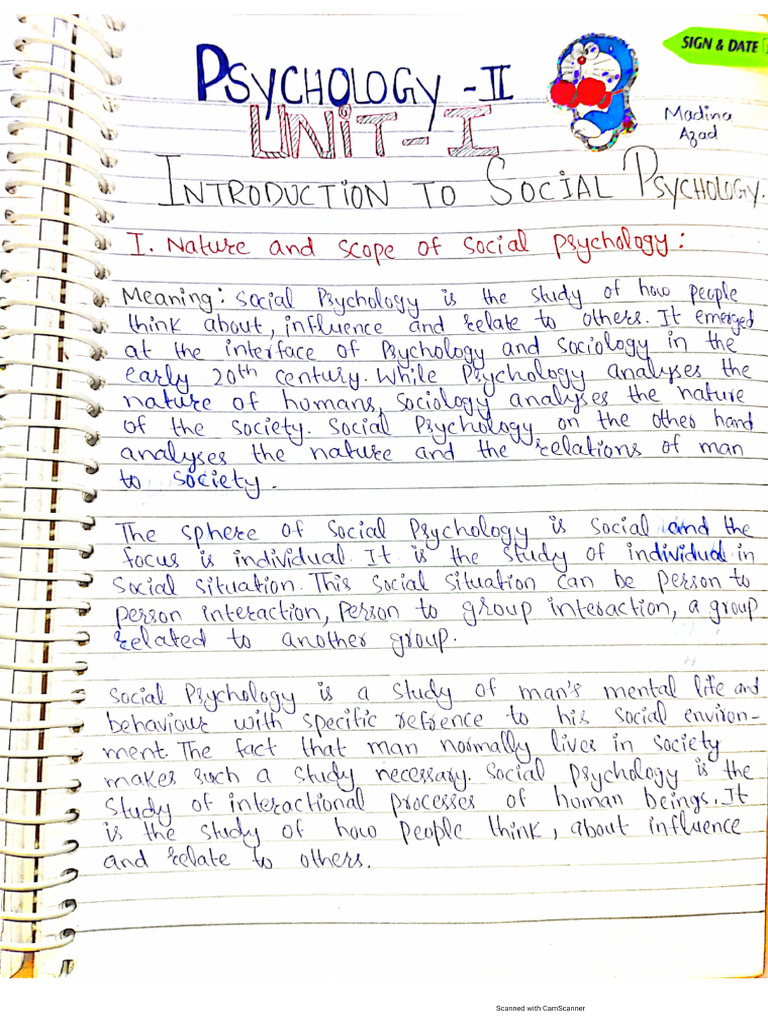 SIGN & DATE
PSYCHOLOGY - II
Madina
Azad
UNIT - I
INTRODUCTION TO SOCIAL PSYCHOLOGY.
I. Nature and scope of social psychology:
Meaning: Social Psychology is the study of how people
think about, influence and relate to others. It emerged
at the interface of Psychology and sociology in the
early 20th century. While Psychology analyses the
nature of humans, sociology analyses the nature
of the society. Social Psychology on the other hand
analyses the nature and the relations of man
to society.
The sphere of social Psychology is social and the
focus is individual. It is the study of individual in
social situation. This social situation can be person to
person interaction, person to group interaction, a group
related to another group.
Social Psychology is a study of man's mental life and
behaviour with specific refrence to his social environ-
ment. The fact that man normally lives in society
makes such a study necessary. Social Psychology is the
study of interactional processes of human beings. It
is the study of how people think, about influence
and relate to others.
Scanned with CamScanner